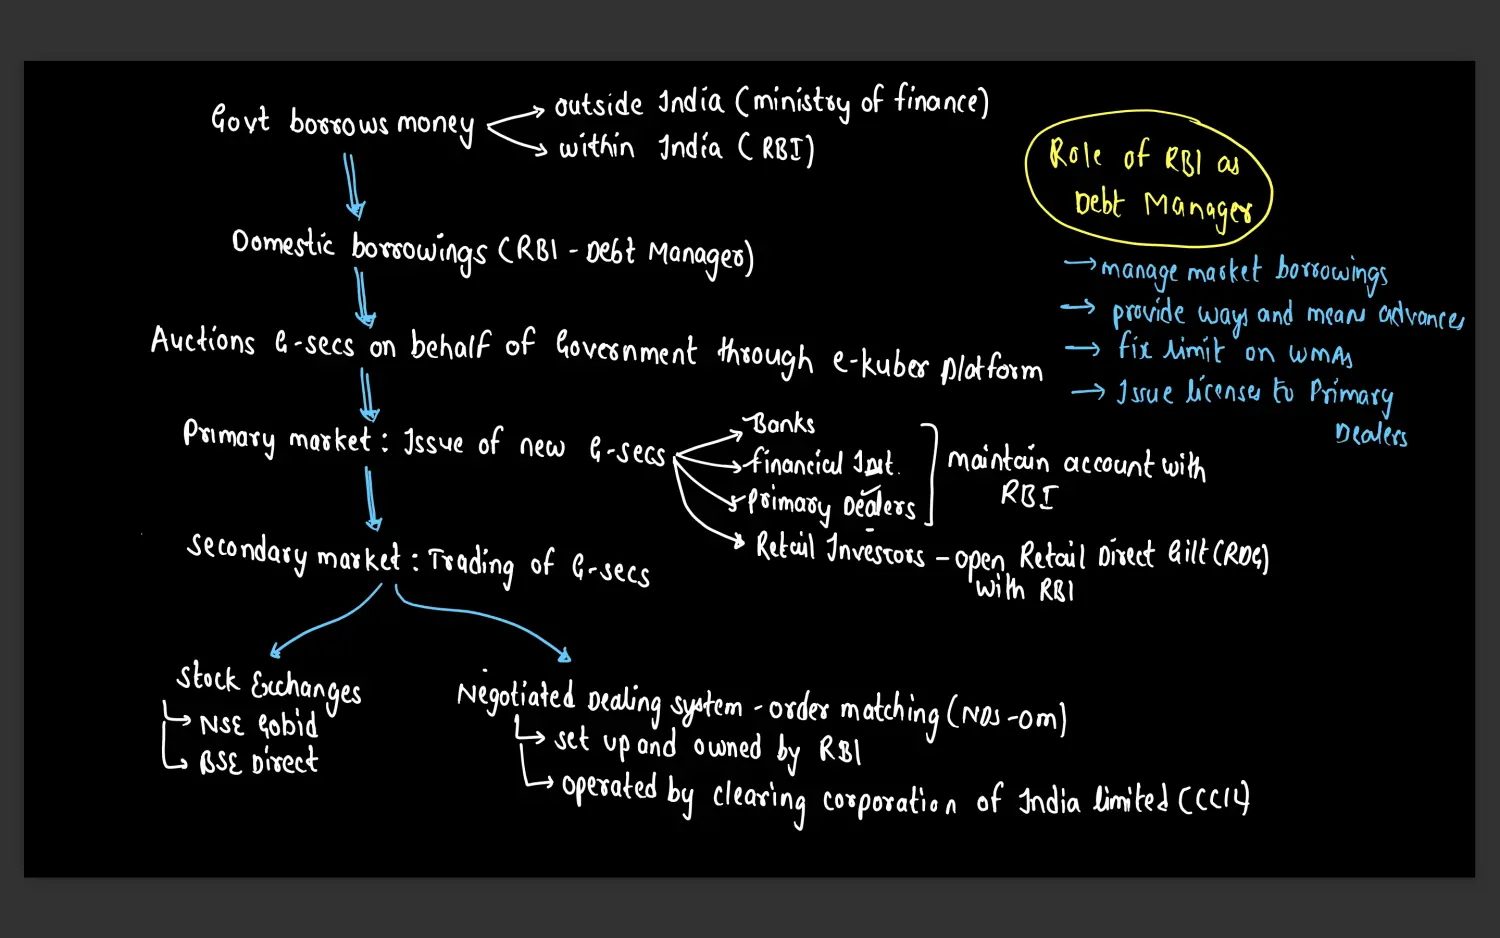 Govt borrows money
outside India (ministry of finance)
within India (RBI)
Domestic borrowings (RBI - Debt Manager)
Auctions G-secs on behalf of Government through e-kuber platform
Primary market: Issue of new G-secs
Banks
financial Inst.
Primary Dealers
maintain account with
RBI
Retail Investors - open Retail Direct Gilt (RDG)
with RBI
Secondary market: Trading of G-secs
Stock Exchanges
NSE Gobid
BSE Direct
Negotiated Dealing system - order matching (NDS-OM)
set up and owned by RBI
operated by clearing corporation of India limited (CCIL)
Role of RBI as
Debt Manager
manage market borrowings
provide ways and means advances
fix limit on WMAs
Issue licenses to Primary
Dealers